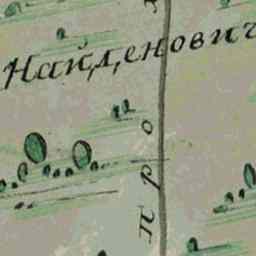 Найденович
про